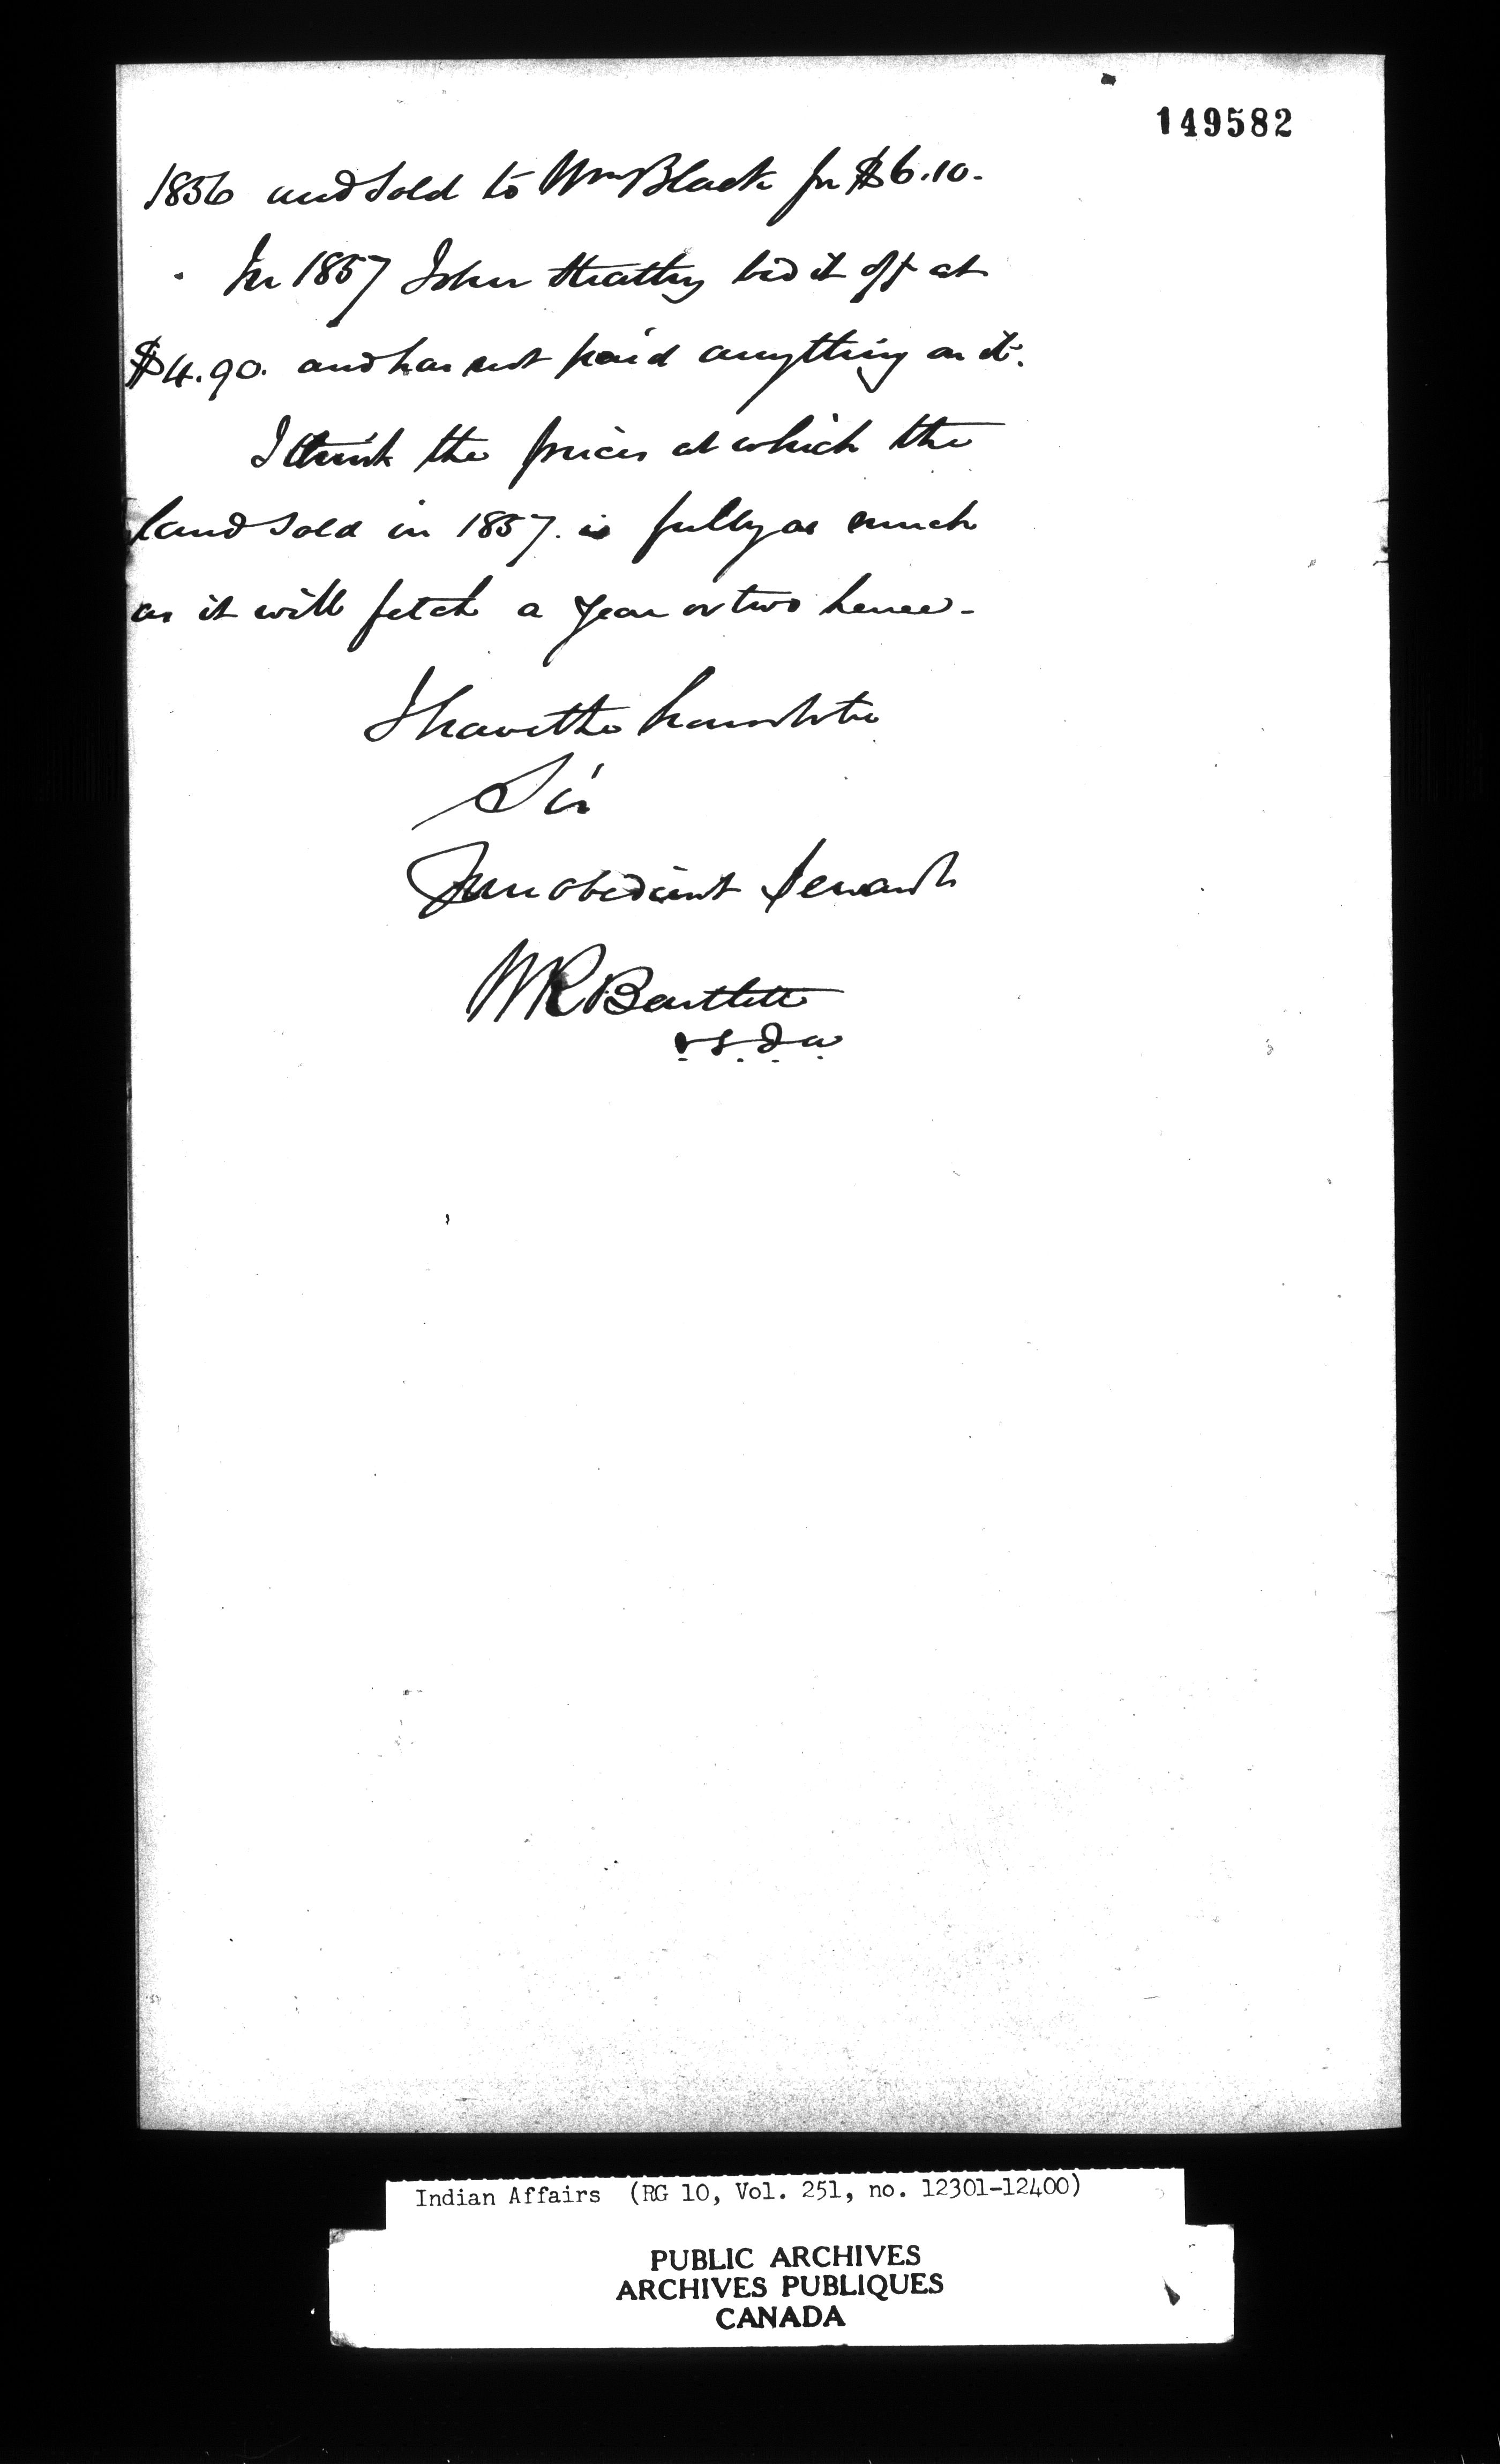 149582
1856 and sold to Wm Black for $6.10.
In 1857 John bid it off at
$4.90. and has not paid anything on it.
I think the prices at which the
land sold in 1857. is fully as much
as it will fetch a year or two hence -
I have the honor to be
Sir
Your obedient servant
WR Bartlett
Indian Affairs (RG 10, Vol. 251, no. 12301-12400)
PUBLIC ARCHIVES
ARCHIVES PUBLIQUES
CANADA